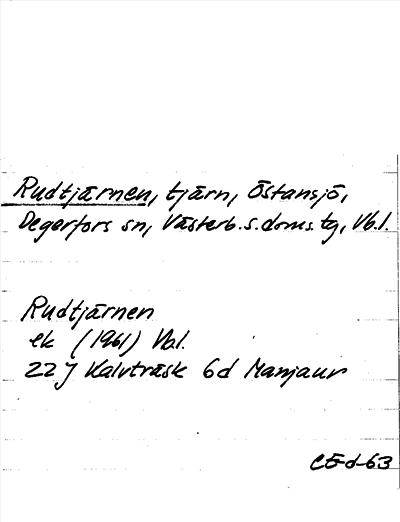 Rudtjärnen, tjärn, Östansjö,
Degerfors sn, Västerb.s.doms.tg, Vb.l.
Rudtjärnen
ek (1961) Vb.l.
22 J Kalvträsk 6d Manjaur
CE-d-63